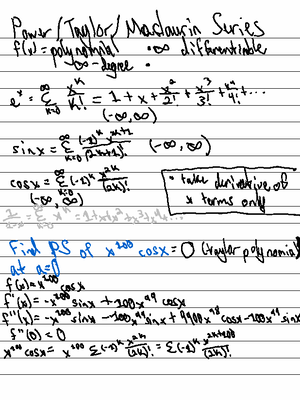 Power/Taylor/Maclaurin Series
f(x) = polynomial • ∞ differentiable
∞-degree •
e^x = ∑_{k=0}^∞ x^k/k! = 1 + x + x^2/2! + x^3/3! + x^4/4! + ...
(-∞, ∞)
sin x = ∑_{k=0}^∞ (-1)^k x^{2k+1}/(2k+1)! (-∞, ∞)
cos x = ∑_{k=0}^∞ (-1)^k x^{2k}/(2k)!
(-∞, ∞)
• take derivative of
x terms only
1/(1-x) = ∑_{k=0}^∞ x^k = 1+x+x^2+x^3+x^4+...
Find PS of x^100 cosx = 0 (taylor polynomial)
at a=0
f(x) = x^100 cosx
f'(x) = -x^100 sinx + 100x^99 cosx
f''(x) = -x^100 sinx - 100x^99 sinx + 9900x^98 cosx - 100x^99 sinx
f''(0) = 0
x^100 cosx = x^100 ∑(-1)^k x^{2k}/(2k)! = ∑(-1)^k x^{2k+100}/(2k)!